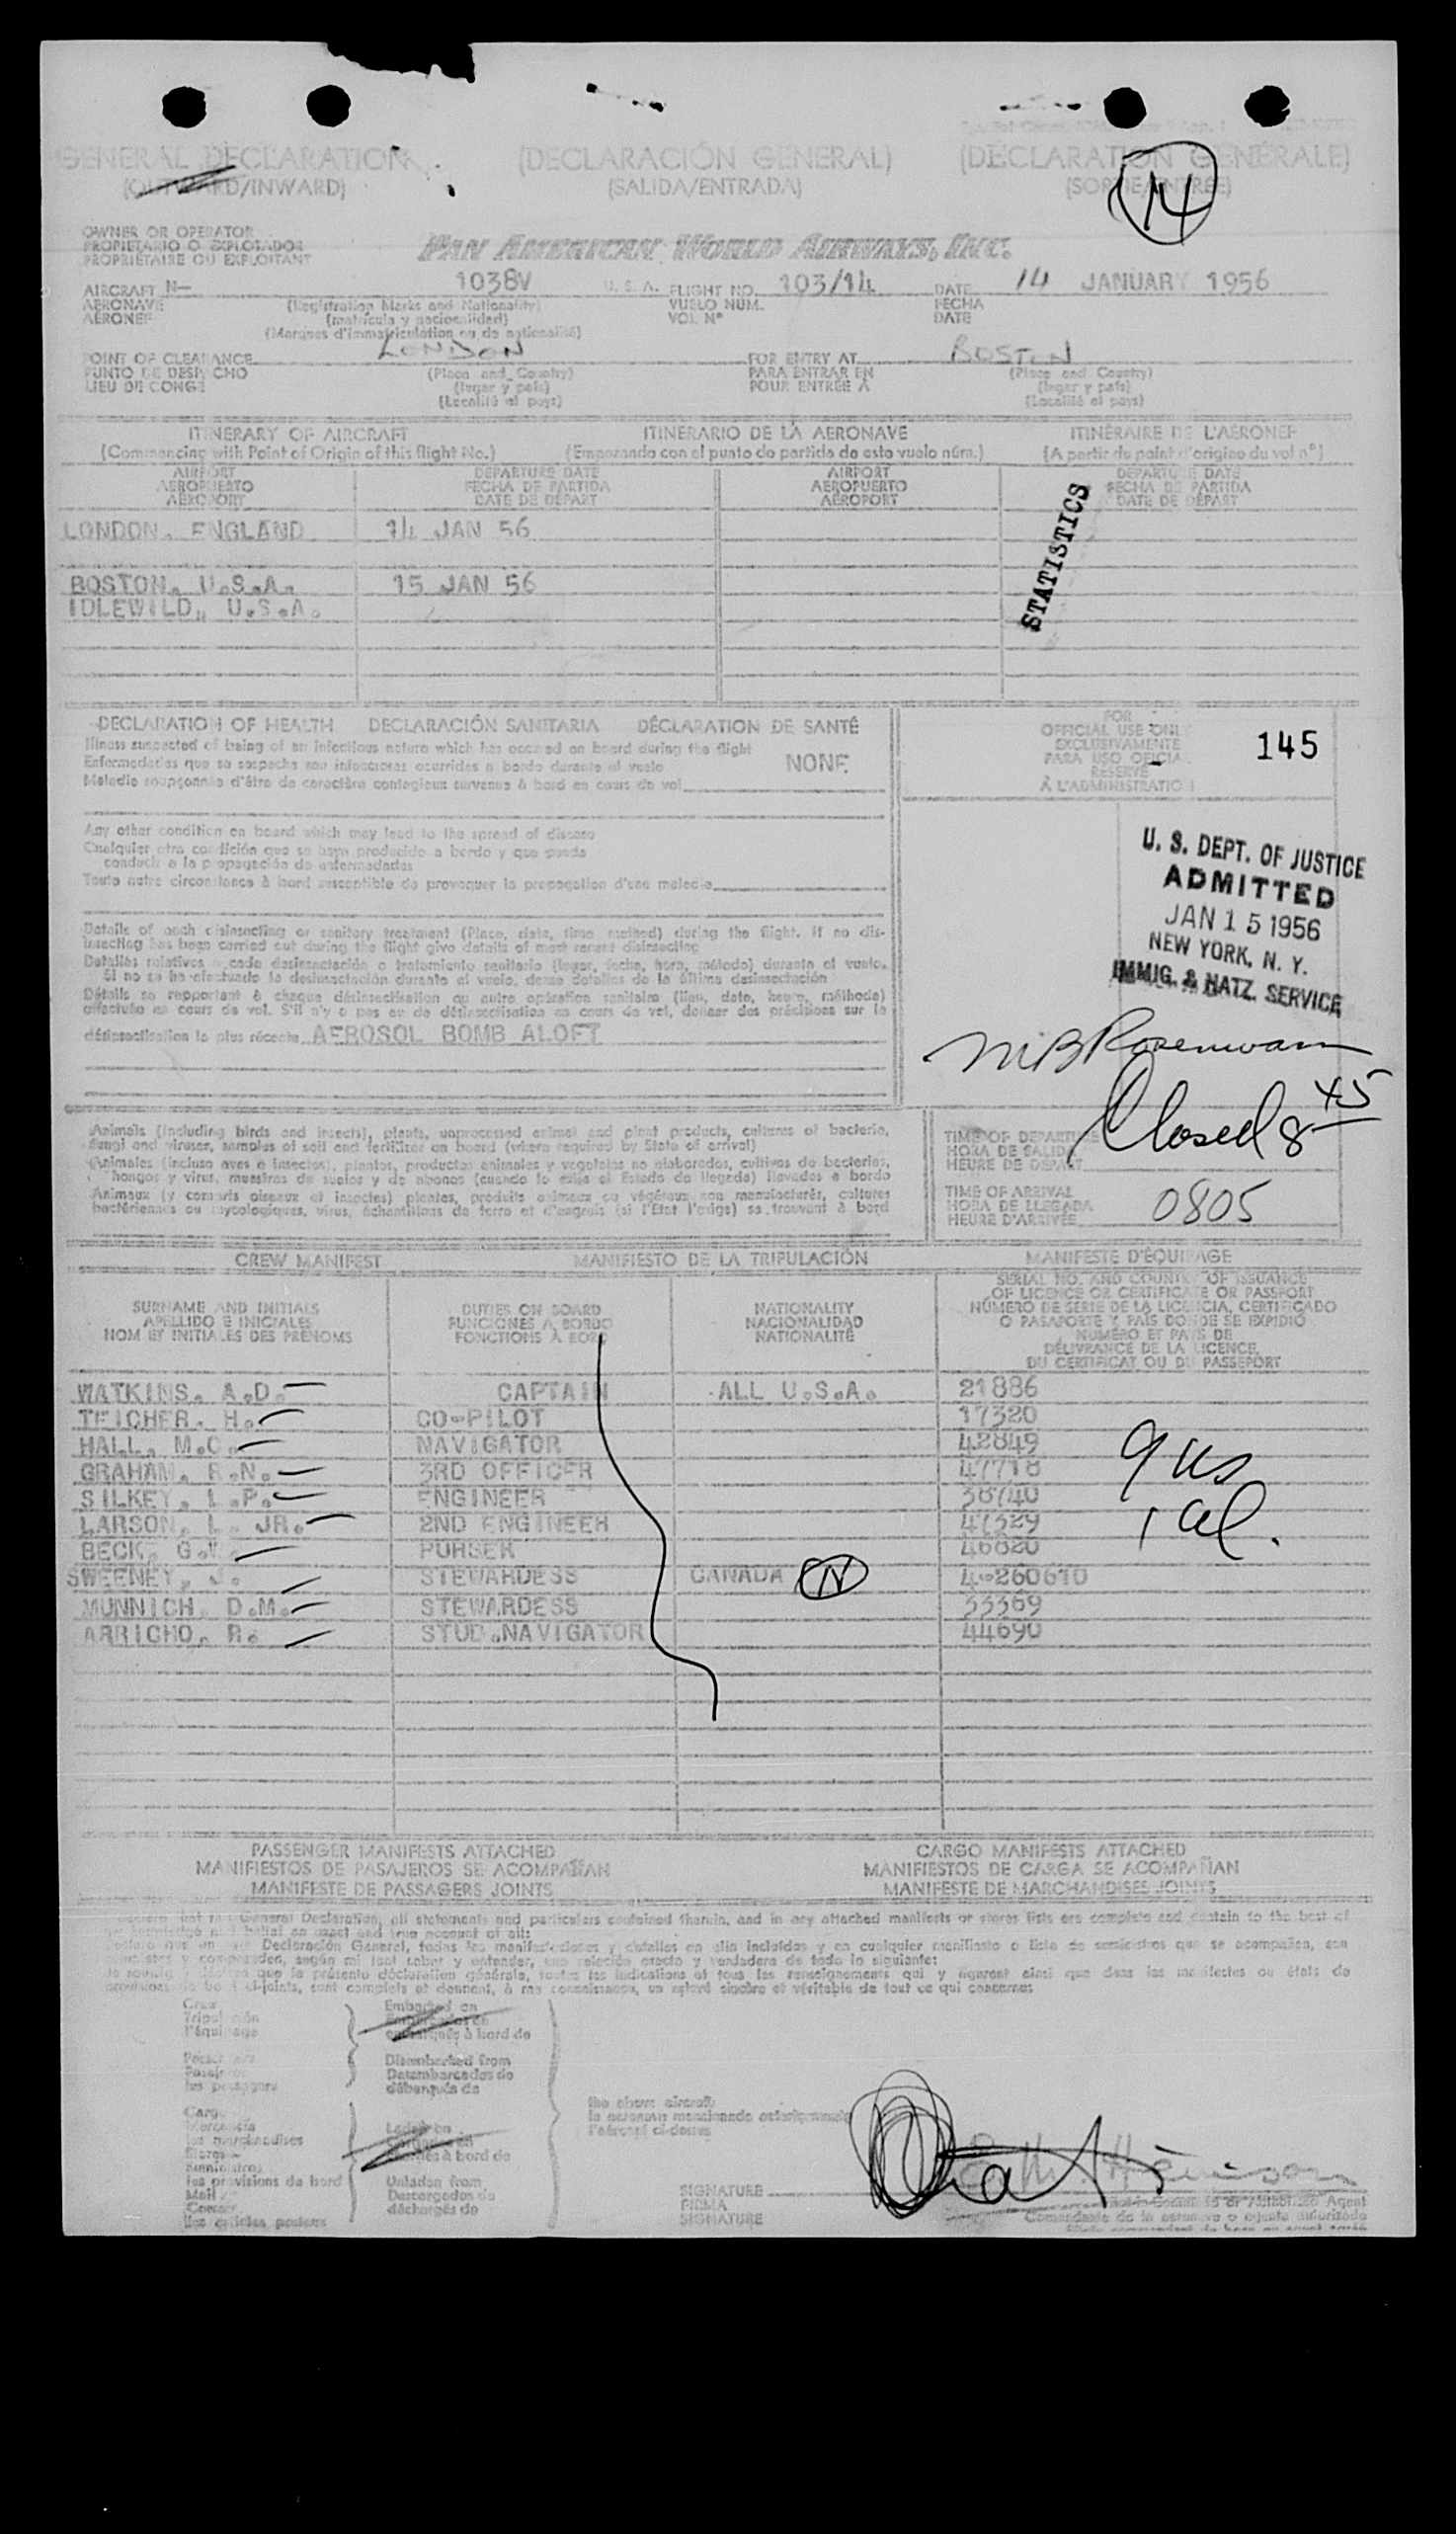 GENERAL DECLARATION (DECLARACIÓN GENERAL) (DÉCLARATION GÉNÉRALE)
(OUTWARD/INWARD) (SALIDA/ENTRADA) (SORTIE/ENTRÉE)
14
OWNER OR OPERATOR
PROPIETARIO O EXPLOTADOR
PROPRIÉTAIRE OU EXPLOITANT
PAN AMERICAN WORLD AIRWAYS, INC.
AIRCRAFT N— 1038V U.S.A. FLIGHT NO. 103/14 DATE 14 JANUARY 1956
AERONAVE (Registration Marks and Nationality) VUELO NUM. FECHA
AÉRONEF (matrícula y nacionalidad) VOL Nº DATE
(Marques d'immatriculation ou de nationalité)
POINT OF CLEARANCE LONDON FOR ENTRY AT BOSTON
PUNTO DE DESPACHO (Place and Country) PARA ENTRAR EN (Place and Country)
LIEU DE CONGE (lugar y país) POUR ENTRÉE À (lugar y país)
(Localité et pays) (Localité et pays)
ITINERARY OF AIRCRAFT ITINERARIO DE LA AERONAVE ITINÉRAIRE DE L'AÉRONEF
(Commencing with Point of Origin of this flight No.) (Empezando con el punto de partida de este vuelo núm.) (A partir du point d'origine du vol nº)
AIRPORT DEPARTURE DATE AIRPORT DEPARTURE DATE
AEROPUERTO FECHA DE PARTIDA AEROPUERTO FECHA DE PARTIDA
AÉROPORT DATE DE DÉPART AÉROPORT DATE DE DÉPART
LONDON, ENGLAND 14 JAN 56
STATISTICS
BOSTON, U.S.A. 15 JAN 56
IDLEWILD, U.S.A.
DECLARATION OF HEALTH DECLARACIÓN SANITARIA DÉCLARATION DE SANTÉ
Illness suspected of being of an infectious nature which has occurred on board during the flight
Enfermedades que se sospecha son infecciosas ocurridas a bordo durante el vuelo NONE
Maladie soupçonnée d'être de caractère contagieux survenue à bord en cours de vol
FOR
OFFICIAL USE ONLY
EXCLUSIVAMENTE
PARA USO OFICIAL
RÉSERVÉ
À L'ADMINISTRATION
145
Any other condition on board which may lead to the spread of disease
Cualquier otra condición que se haya producido a bordo y que pueda
conducir a la propagación de enfermedades
Toute autre circonstance à bord susceptible de provoquer la propagation d'une maladie
U. S. DEPT. OF JUSTICE
ADMITTED
JAN 15 1956
NEW YORK, N. Y.
IMMIG. & NATZ. SERVICE
Details of each disinsecting or sanitary treatment (Place, date, time, method) during the flight. If no dis-
insecting has been carried out during the flight give details of most recent disinsecting
Detalles relativos a cada desinsectación o tratamiento sanitario (lugar, fecha, hora, método) durante el vuelo.
Si no se ha efectuado la desinsectación durante el vuelo, dense detalles de la última desinsectación
Détails se rapportant à chaque désinsectisation ou autre opération sanitaire (lieu, date, heure, méthode)
effectuée en cours de vol. S'il n'y a pas eu de désinsectisation en cours de vol, donner des précisions sur la
désinsectisation la plus récente AEROSOL BOMB ALOFT
Closed 8 45
Animals (including birds and insects), plants, unprocessed animal and plant products, cultures of bacteria,
fungi and viruses, samples of soil and fertilizer on board (where required by State of arrival)
Animales (incluso aves e insectos), plantas, productos animales y vegetales no elaborados, cultivos de bacterias,
hongos y virus, muestras de suelos y de abonos (cuando lo exija el Estado de llegada) llevados a bordo
Animaux (y compris oiseaux et insectes) plantes, produits animaux ou végétaux non manufacturés, cultures
bactériennes ou mycologiques, virus, échantillons de terre et d'engrais (si l'Etat l'exige) se trouvant à bord
TIME OF DEPARTURE
HORA DE SALIDA
HEURE DE DÉPART
TIME OF ARRIVAL
HORA DE LLEGADA 0805
HEURE D'ARRIVÉE
CREW MANIFEST MANIFIESTO DE LA TRIPULACIÓN MANIFESTE D'ÉQUIPAGE
SURNAME AND INITIALS
APELLIDO E INICIALES
NOM ET INITIALES DES PRENOMS
DUTIES ON BOARD
FUNCIONES A BORDO
FONCTIONS À BORD
NATIONALITY
NACIONALIDAD
NATIONALITÉ
SERIAL NO. AND COUNTRY OF ISSUANCE
OF LICENCE OR CERTIFICATE OR PASSPORT
NÚMERO DE SERIE DE LA LICENCIA, CERTIFICADO
O PASAPORTE Y PAÍS DONDE SE EXPIDIÓ
NUMÉRO ET PAYS DE
DÉLIVRANCE DE LA LICENCE,
DU CERTIFICAT OU DU PASSEPORT
WATKINS, A.D. CAPTAIN ALL U.S.A. 21886
TEICHER, H. CO-PILOT 17320
HALL, M.C. NAVIGATOR 42849
GRAHAM, R.N. 3RD OFFICER 47718
SILKEY, L.P. ENGINEER 36740
LARSON, L. JR. 2ND ENGINEER 47329
BECK, G. PURSER 46820
SWEENEY, J. STEWARDESS CANADA N 4-260610
MUNNICH, D.M. STEWARDESS 33369
ARRICHO, R. STUD.NAVIGATOR 44690
9 us
1 al.
PASSENGER MANIFESTS ATTACHED CARGO MANIFESTS ATTACHED
MANIFIESTOS DE PASAJEROS SE ACOMPAÑAN MANIFIESTOS DE CARGA SE ACOMPAÑAN
MANIFESTE DE PASSAGERS JOINTS MANIFESTE DE MARCHANDISES JOINTS
General Declaration, all statements and particulars contained therein, and in any attached manifests or stores lists are complete and contain to the best of
belief an exact and true account of all:
Declaración General, todas las manifestaciones y detalles en ella incluidos y en cualquier manifiesto o lista de suministros que se acompañen, son
según mi leal saber y entender, una relación exacta y verdadera de todo lo siguiente:
que la présente déclaration générale, toutes les indications et tous les renseignements qui y figurent ainsi que dans les manifestes ou états de
joints, sont complets et donnent, à ma connaissance, un exposé sincère et véritable de tout ce qui concerne:
Crew Embarked on
Tripulación
l'équipage embarqués à bord de
Disembarked from
Desembarcados de
les passagers débarqués de
the above aircraft
la aeronave mencionada anteriormente
l'aéronef ci-dessus
Cargo
Mercancía
les marchandises
les provisions de bord Unladen from
Mail Descargados de
Correo déchargés de
les articles postaux
SIGNATURE
FIRMA
SIGNATURE
Agent
Comandante de la aeronave o agente autorizado